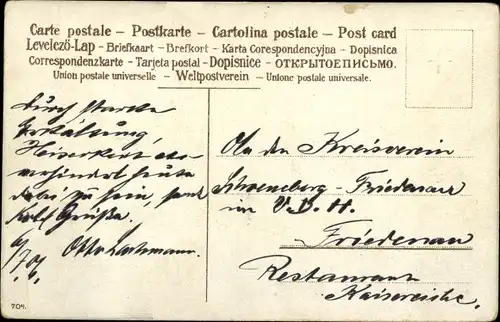 Carte postale – Postkarte – Cartolina postale – Post card
Levelező-Lap - Briefkaart - Brefkort - Karta Corespondencyjna - Dopisnica
Correspondenzkarte - Tarjeta postal - Dopisnice - ОТКРЫТОЕПИСЬМО.
Union postale universelle - Weltpostverein - Unione postale universale.
Durch starke
Erkältung,
Heiserkeit etc.
verhindert heute
dabei zu sein, sende
Grüße.
Otto
An den Kreisverein
Schoeneberg - Friedenau
im V. D. H.
Friedenau
Restaurant
Kaisereiche.
704.